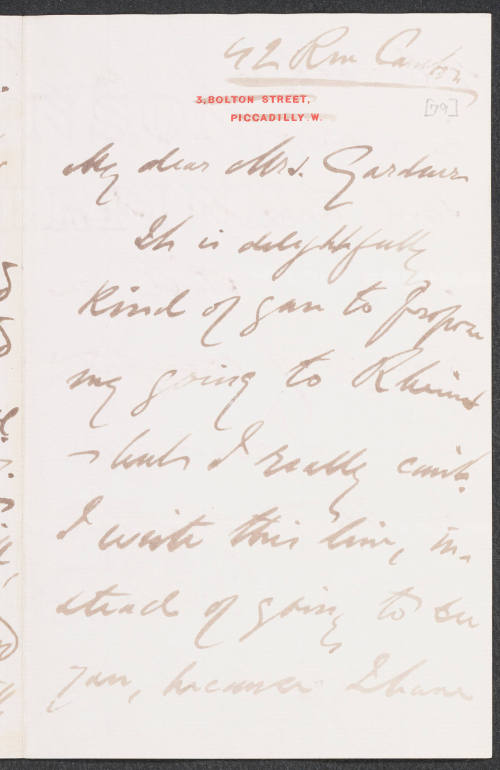 42 Rue Cambon
3, BOLTON STREET,
PICCADILLY. W.
[79]
My dear Mrs. Gardner
It is delightfully
kind of you to propose
my going to Rheims
— but I really can't.
I write this line, in-
stead of going to see
you, because I have